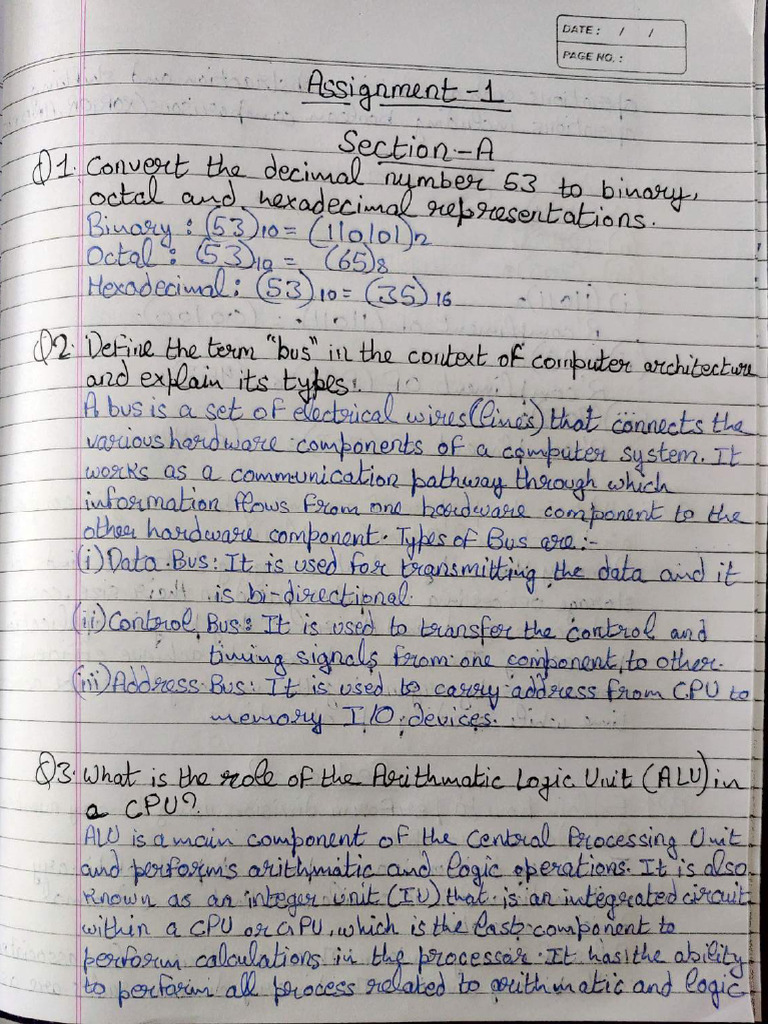 DATE: / /
PAGE NO.:
Assignment-1
Section-A
Q1. Convert the decimal number 53 to binary,
octal and hexadecimal representations.
Binary : (53)10 = (110101)2
Octal : (53)10 = (65)8
Hexadecimal: (53)10 = (35)16
Q2. Define the term "bus" in the context of computer architecture
and explain its types.
A bus is a set of electrical wires(lines) that connects the
various hardware components of a computer system. It
works as a communication pathway through which
information flows from one hardware component to the
other hardware component. Types of Bus are:-
(i) Data Bus: It is used for transmitting the data and it
is bi-directional.
(ii) Control Bus: It is used to transfer the control and
timing signals from one component to other.
(iii) Address Bus: It is used to carry address from CPU to
memory I/O devices.
Q3. What is the role of the Arithmatic Logic Unit (ALU) in
a CPU?
ALU is a main component of the Central Processing Unit
and perform's arithmatic and logic operations. It is also
known as an integer unit (IU) that is an integrated circuit
within a CPU or GPU, which is the last component to
perform calculations in the processor. It has the ability
to perform all process related to arithmatic and logic